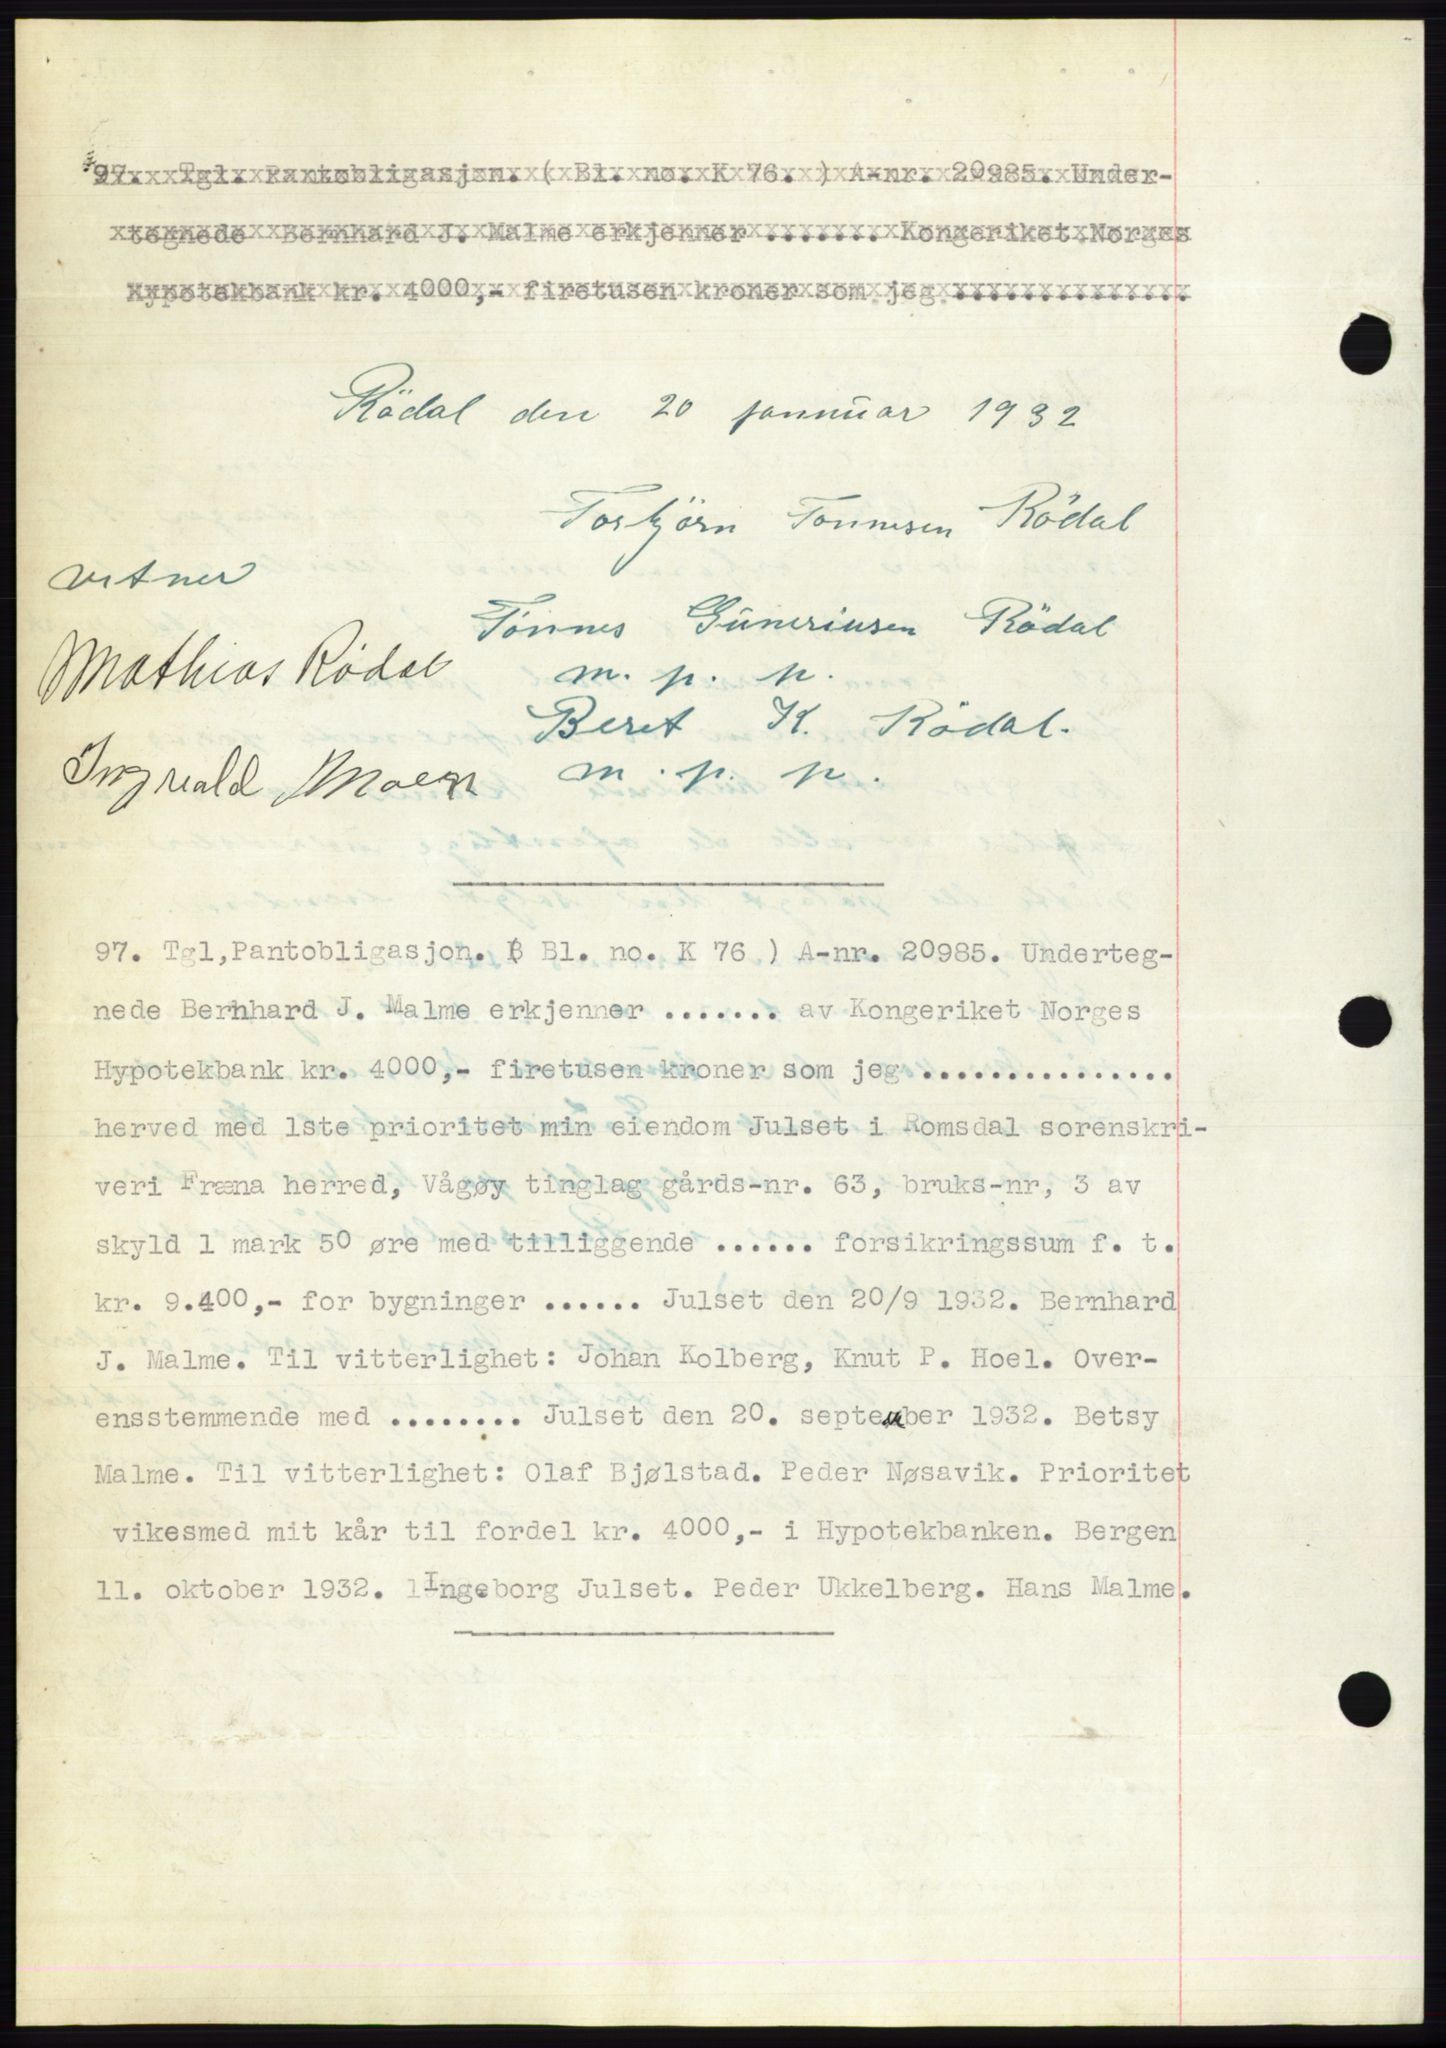 97. Tgl. Pantobligasjon. ( Bl. no. K 76. ) A-nr. 20985. Under-
tegnede Bernhard J. Malme erkjenner ....... Kongeriket Norges
Hypotekbank kr. 4000,- firetusen kroner som jeg ..............
Rödal den 20 januar 1932
Torbjörn Tönnesen Rödal
vitner
Tönnes Gúneriusen Rödal
Mathias Rödal m. p. p.
Beret K. Rödal.
Ingvald Moen m. p. p.
97. Tgl,Pantobligasjon. ( Bl. no. K 76 ) A-nr. 20985. Underteg-
nede Bernhard J. Malme erkjenner ....... av Kongeriket Norges
Hypotekbank kr. 4000,- firetusen kroner som jeg ...............
herved med 1ste prioritet min eiendom Julset i Romsdal sorenskri-
veri Fræna herred, Vågøy tinglag gårds-nr. 63, bruks-nr, 3 av
skyld 1 mark 50 øre med tilliggende ...... forsikringssum f. t.
kr. 9.400,- for bygninger ...... Julset den 20/9 1932. Bernhard
J. Malme. Til vitterlighet: Johan Kolberg, Knut P. Hoel. Over-
ensstemmende med ........ Julset den 20. september 1932. Betsy
Malme. Til vitterlighet: Olaf Bjølstad. Peder Nøsavik. Prioritet
vikesmed mit kår til fordel kr. 4000,- i Hypotekbanken. Bergen
11. oktober 1932. Ingeborg Julset. Peder Ukkelberg. Hans Malme.